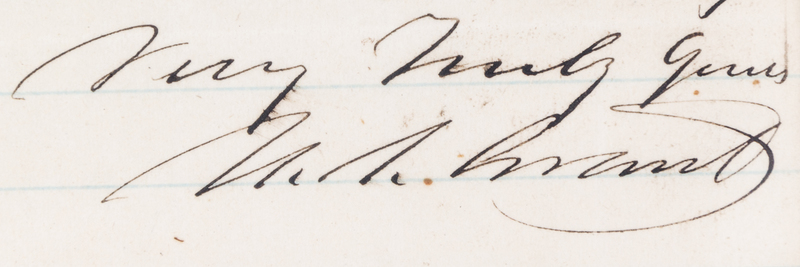 Very Truly Yours
U. S. Grant